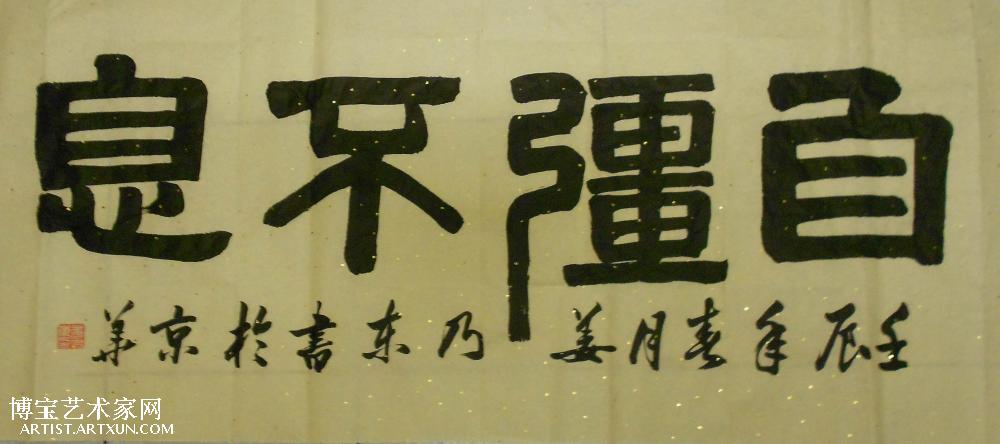 自彊不息
壬辰年春月姜乃东書於京华
博宝艺术家网
ARTIST.ARTXUN.COM